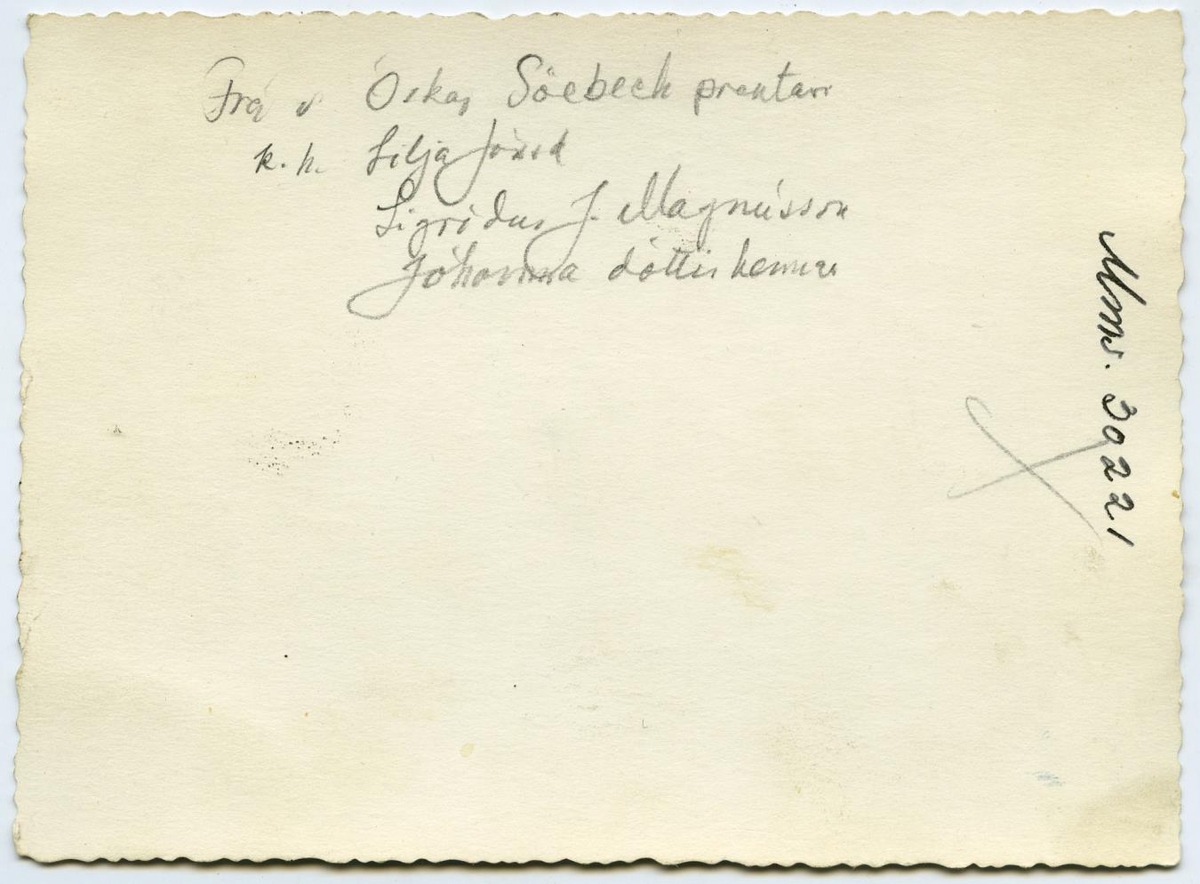 Frá v Óskar Söebech prentari
k. h. Lilja Jósed
Sigridur J. Magnússon
Jóhanna dóttir hennar
Mms. 30221